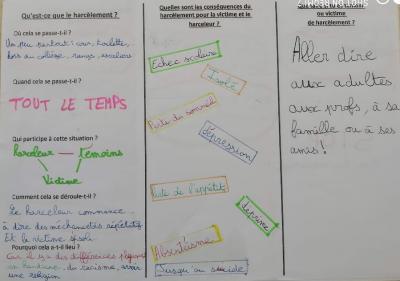 Qu'est-ce que le harcèlement ?
Où cela se passe-t-il ?
Un peu partout : cour, toilette,
hors du collège, rangs, escaliers
Quand cela se passe-t-il ?
TOUT LE TEMPS
Qui participe à cette situation ?
harceleur — témoins
Victime
Comment cela se déroule-t-il ?
Le harceleur commence
à dire des méchancetés répétitifs
Et la victime
Pourquoi cela a-t-il lieu ?
Car il y a des différences physiques
un handicap, du racisme, avoir
une religion
Quelles sont les conséquences du
harcèlement pour la victime et le
harceleur ?
Echec scolaire
Isolé
Perte du sommeil
dépression
Perte de l'appétit
déprime
Absentéisme
Jusqu'au suicide
ou victime
de harcèlement ?
Aller dire
aux adultes
aux profs, à sa
famille ou à ses
amis!